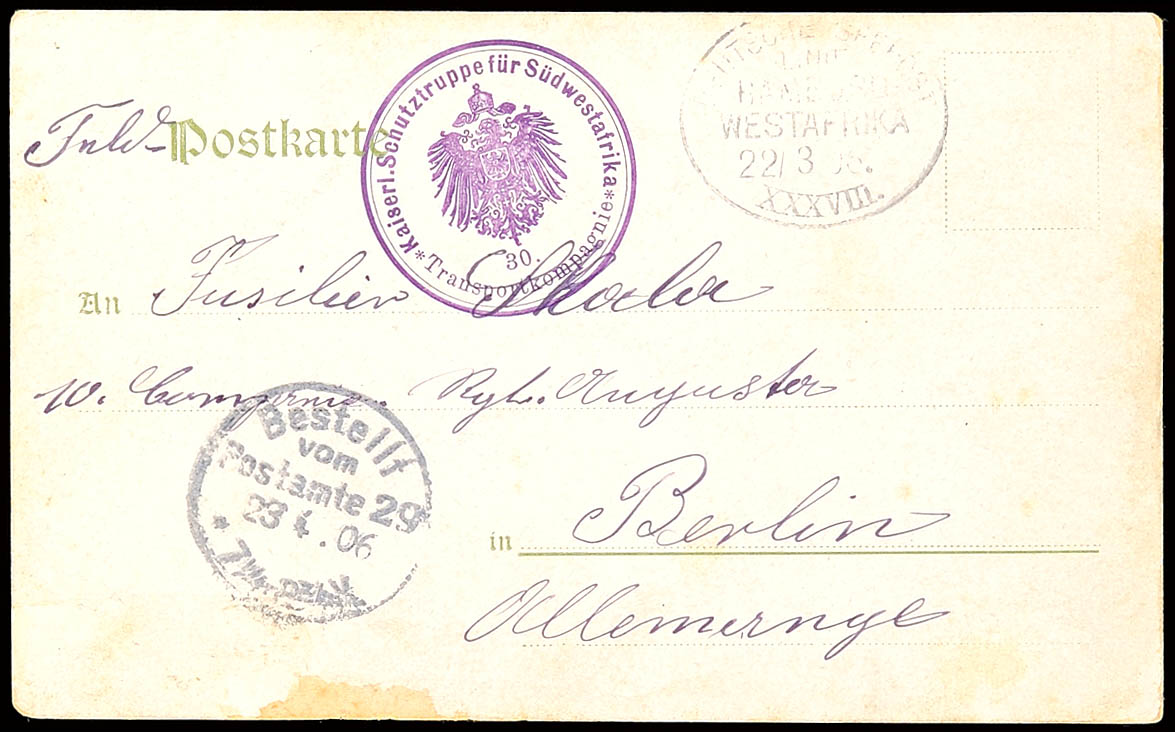 Feld-Postkarte
Kaiserl. Schutztruppe für Südwestafrika
* Transportkompagnie *
30.
DEUTSCHE SEEPOST
LINIE
HAMBURG
WESTAFRIKA
22/3 06.
XXXVIII.
An Fusilier
10. Compagnie. Rgt. Augusta
Bestellt
vom
Postamte 29
23 4. 06
in Berlin
Allemagne